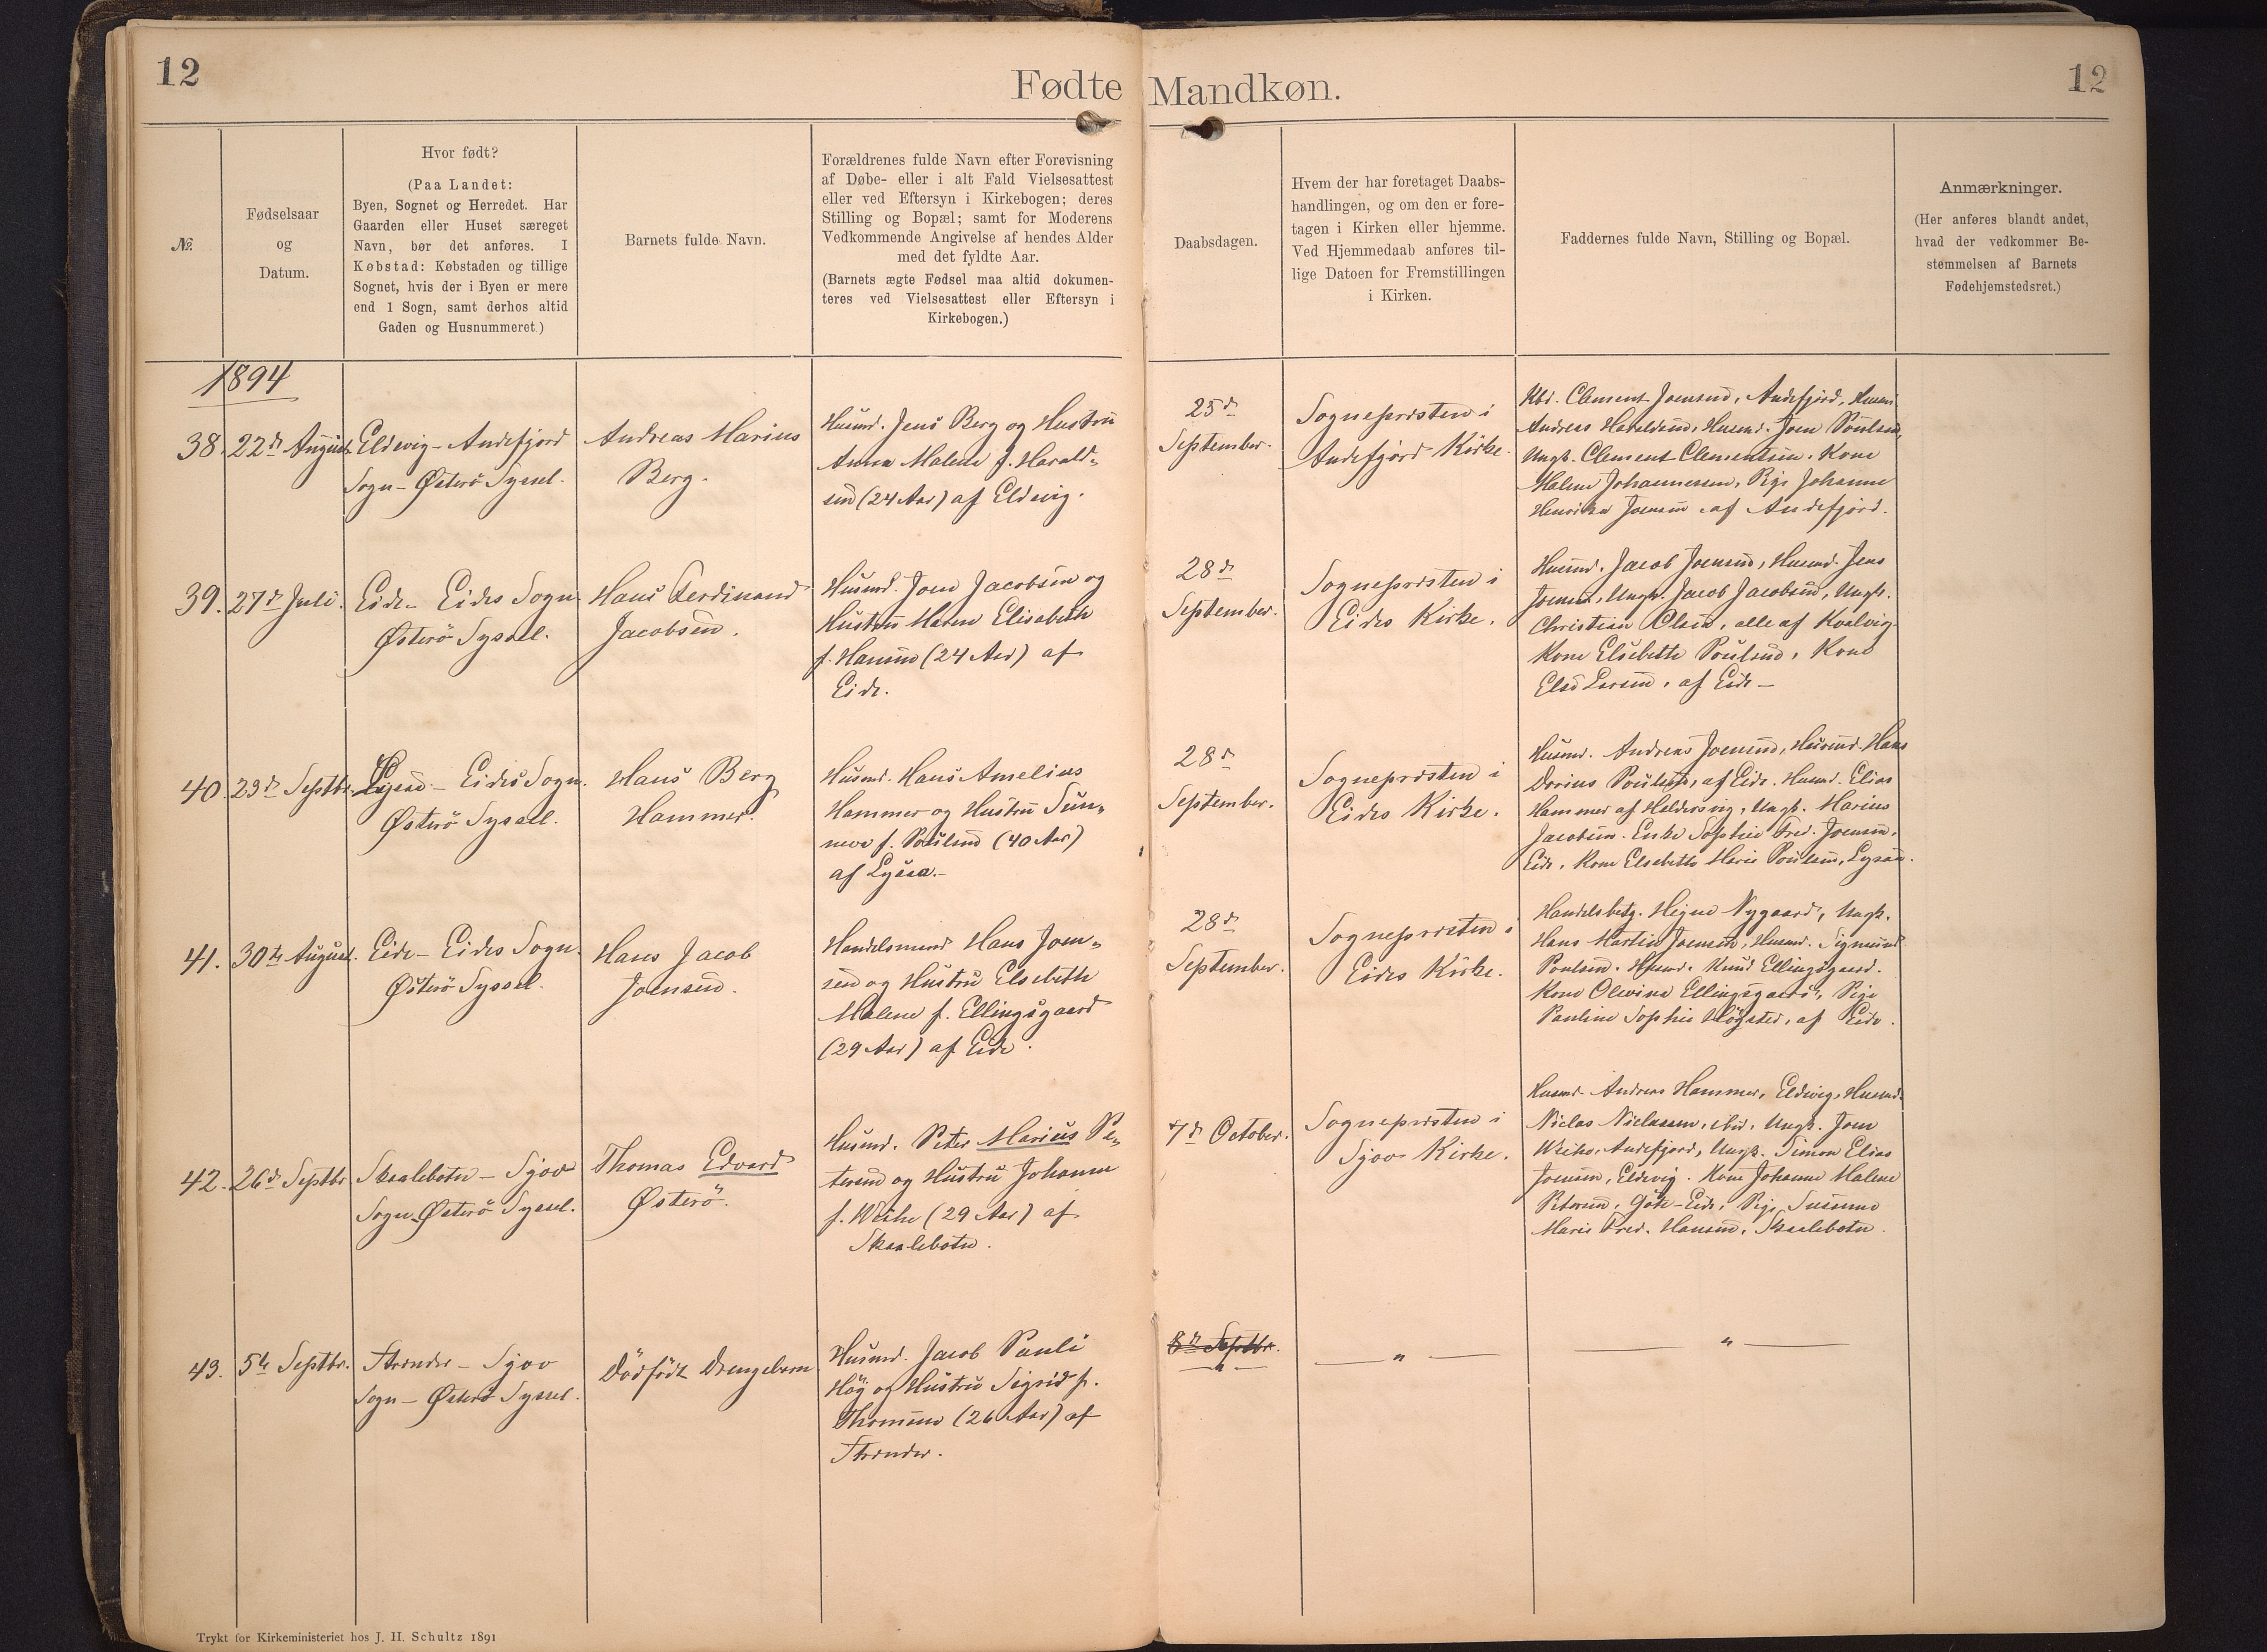 12
Fødte Mandkøn.
12
№.
Fødselsaar
og
Datum.
Hvor født?
(Paa Landet:
Byen, Sognet og Herredet. Har
Gaarden eller Huset særeget
Navn, bør det anføres. I
Købstad: Købstaden og tillige
Sognet, hvis der i Byen er mere
end 1 Sogn, samt derhos altid
Gaden og Husnummeret.)
Barnets fulde Navn.
Forældrenes fulde Navn efter Forevisning
af Døbe- eller i alt Fald Vielsesattest
eller ved Eftersyn i Kirkebogen; deres
Stilling og Bopæl; samt for Moderens
Vedkommende Angivelse af hendes Alder
med det fyldte Aar.
(Barnets ægte Fødsel maa altid dokumen-
teres ved Vielsesattest eller Eftersyn i
Kirkebogen.)
Daabsdagen.
Hvem der har foretaget Daabs-
handlingen, og om den er fore-
tagen i Kirken eller hjemme.
Ved Hjemmedaab anføres til-
lige Datoen for Fremstillingen
i Kirken.
Faddernes fulde Navn, Stilling og Bopæl.
Anmærkninger.
(Her anføres blandt andet,
hvad der vedkommer Be-
stemmelsen af Barnets
Fødehjemstedsret.)
1894
38.
22de August
Eldevig - Andefjord
Sogn - Østerö Syssel.
Andreas Marius
Berg.
Husmd. Jens Berg og Hustru
Anna Malene f. Harald-
sen (24 Aar) af Eldevig.
25de
September.
Sognepræsten i
Andefjord Kirke.
Clement Joensen, Andefjord,
Andreas Haraldsen, Husmd. Joen Poulsen,
Ungk. Clement Clementsen. Kone
Malene Johannesen, Pige Johanne
Henrikka Joensen af Andefjord.
39.
27de Juli.
Eide - Eides Sogn
Østerö Syssel.
Hans Ferdinand
Jacobsen.
Husmd. Joen Jacobsen og
Hustru Maren Elisabeth
f. Hansen (24 Aar) af
Eide.
28de
September.
Sognepræsten i
Eides Kirke.
Husmd. Jacob Joensen, Husmd. Jens
Joensen, Ungk. Jacob Jacobsen, Ungk.
Christian Olsen, alle af Kvalvig.
Kone Elsebette Poulsen, Kone
af Eide -
40.
23de Septbr.
- Eides Sogn.
Østerö Syssel.
Hans Berg
Hammer.
Husmd. Hans Amelius
Hammer og Hustru Sun-
neva f. Poulsen (40 Aar)
af Lysaa.-
28de
September.
Sognepræsten i
Eides Kirke.
Husmd. Andreas Joensen, Husmd. Hans
Dorius Poulsen, af Eide. Husmd. Elias
Hammer af Haldersvig, Ungk. Marius
Jacobsen. Enke Sophie Fred. Joensen,
Eide. Kone Elsebette Marie Poulsen, Lysaa.
41.
30te August.
Eide - Eides Sogn.
Østerö Syssel.
Hans Jacob
Joensen.
Handelsmand Hans Joen-
sen og Hustru Elsebeth
Malene f. Ellingsgaard
(29 Aar) af Eide.
28de
September.
Sognepræsten i
Eides Kirke.
Handelsbetj. Nygaard, Ungk.
Hans Martin Joensen, Husmd. Sigmund
Poulsen. Husmd. Knud Ellingsgaard.
Kone Olevina Ellingsgaard, Pige
Pauline Sophie Högsted, af Eide.
42.
26de Septbr.
Skaalebotn - Sjov
Sogn. Østerö Syssel.
Thomas Edvard
Østerö.
Husmd. Peter Marius Pe-
tersen og Hustru Johanne
f. Weihe (29 Aar) af
Skaalebotn.
7de October.
Sognepræsten i
Sjov Kirke.
Husmd. Andreas Hammer, Eldevig, Husmd.
Niclas Niclassen, ibid., Ungk. Joen
Weihe, Andefjord, Ungk. Simon Elias
Joensen, Eldevig. Kone Johanne Malene
Petersen, Göte-Eide, Pige Susanne
Marie Fred. Hansen, Skaalebotn.
43.
5te Septbr.
Strender - Sjov
Sogn - Österö Syssel.
Dödfödt Drengebarn
Husmd. Jacob Pauli
Høg og Hustru Sigrid f.
Thomsen (26 Aar) af
Strender.
8de Septbr.
— „ —
— „ —
— „ —
Trykt for Kirkeministeriet hos J. H. Schultz 1891